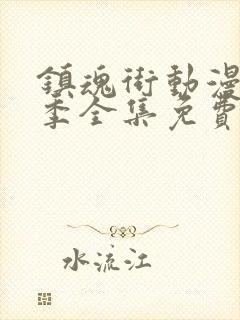 鎮魂街動漫
季全集免費
水流江